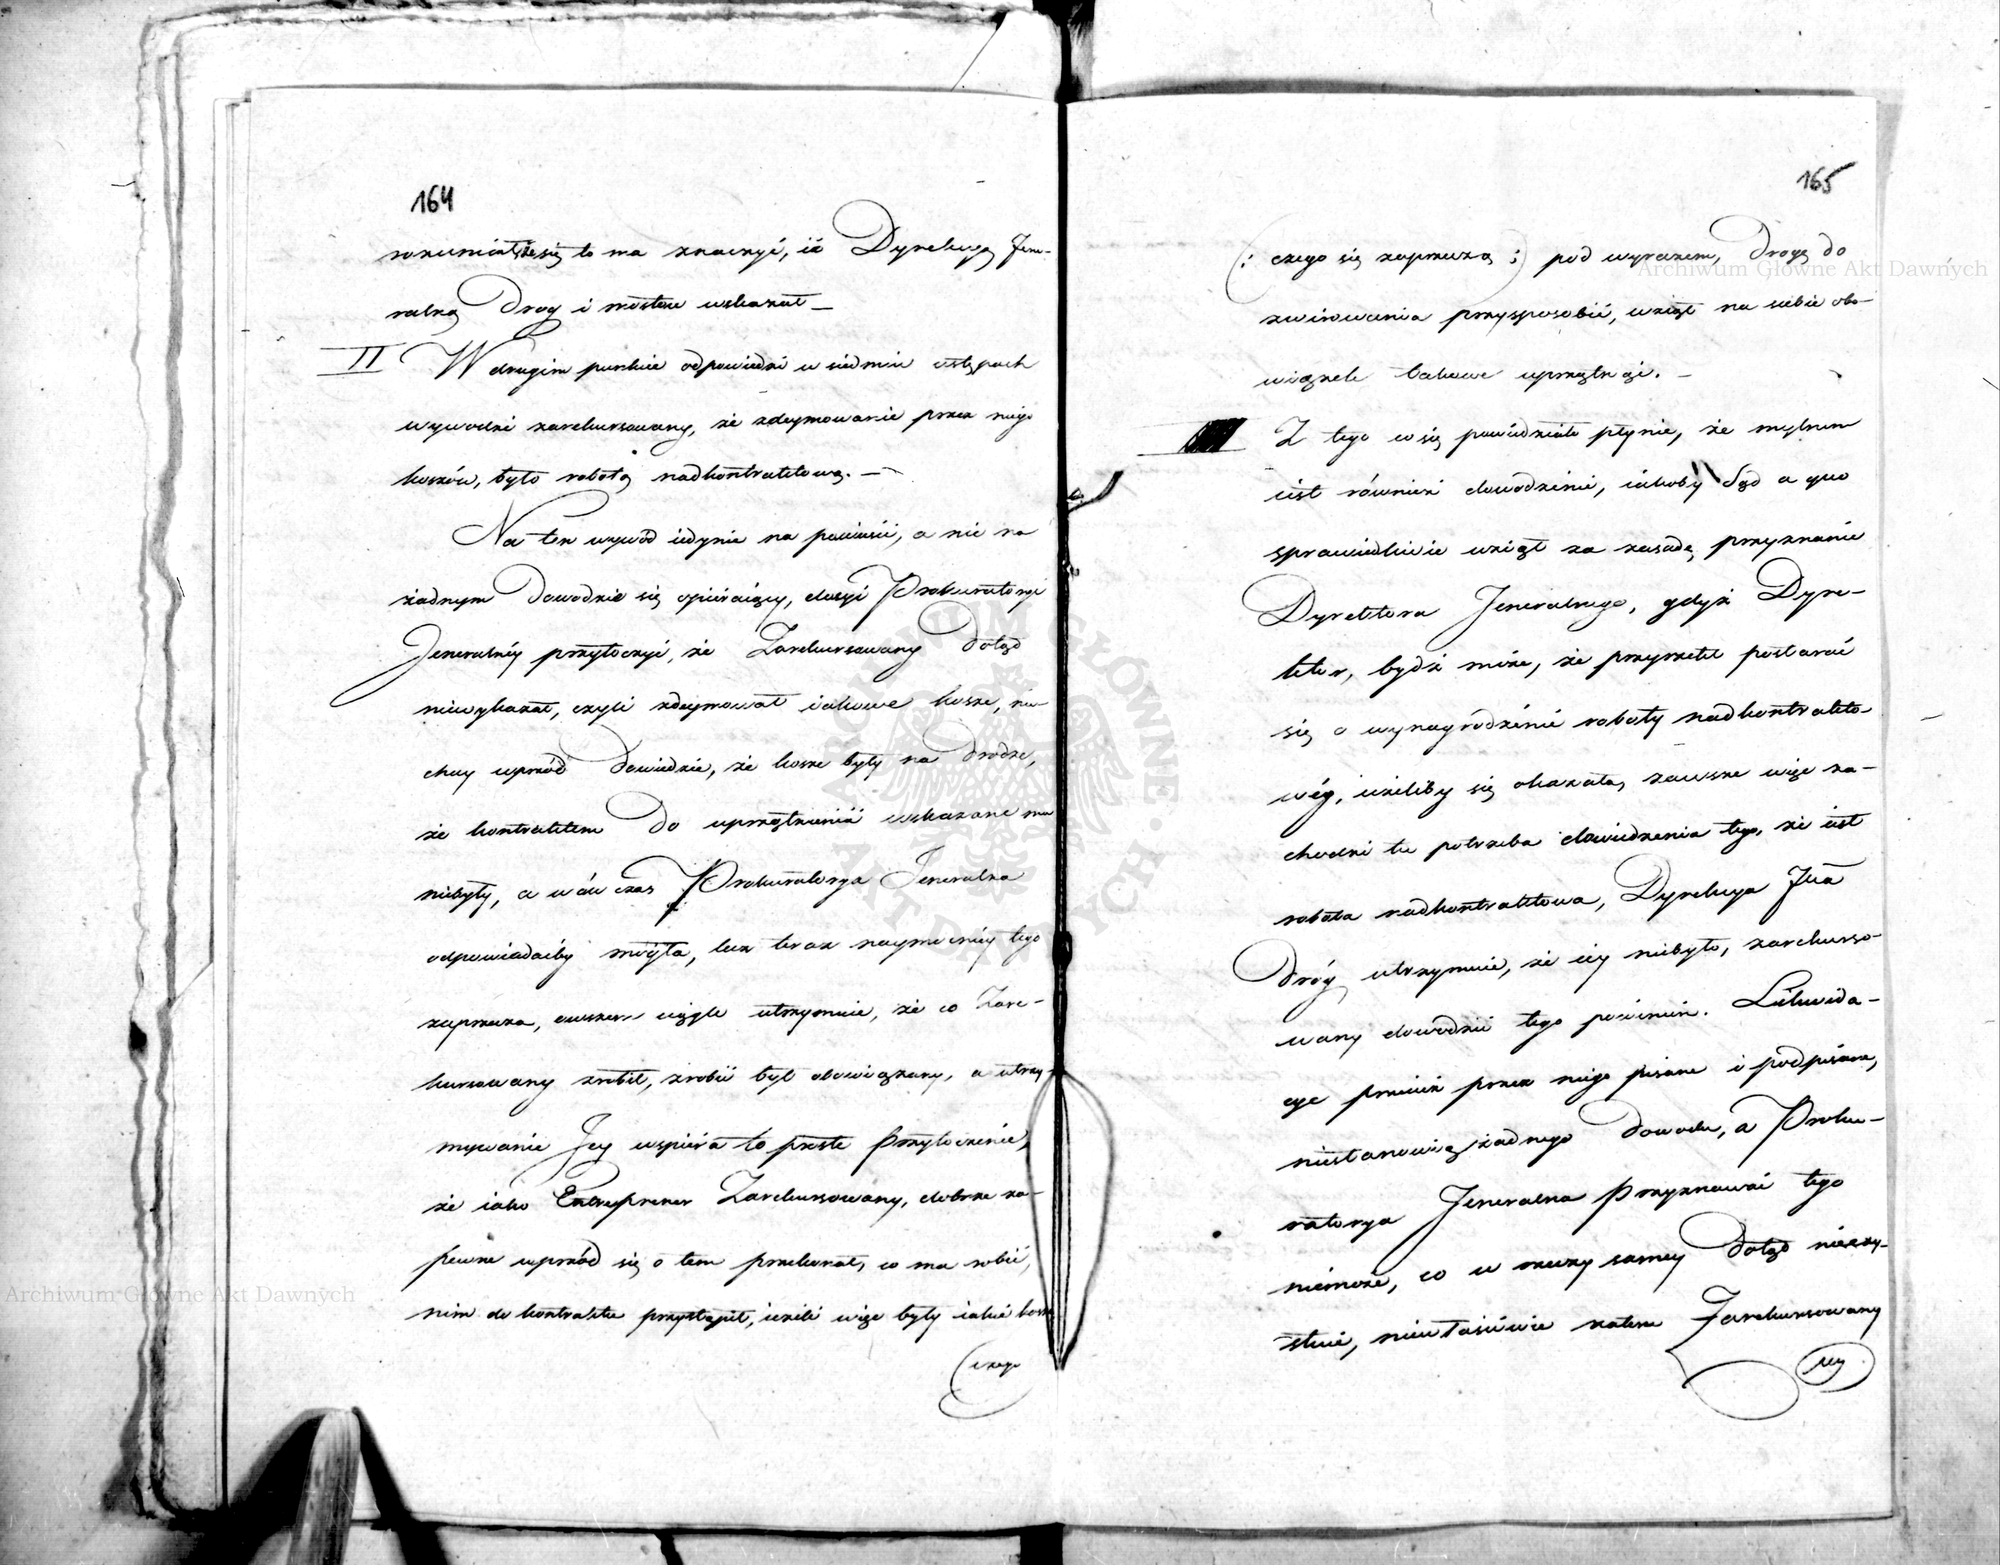 164
rozumiał, że się to ma znaczyć, iż Dyrekcyą Jene-
ralną Dróg i mostów wskazał —
II W drugim punkcie odpowiedzi w siedmiu ustępach
wywodzi zarekursowany, że zdeymowanie przez niego
koszów, było robotą nadkontraktową. —
Na ten wywód iedynie na powieści, a nie na
żadnym Dowodzie się opieraiący, dosyć Prokuratoryi
Jeneralnéy przytoczyć, że Zarekursowany Dotąd
niewykazał, czyli zdeymował iakowe kosze, nie-
chay wprzód Dowiedzie, że kosze były na Drodze,
że kontraktem Do uprzątnienia wskazane mu
niebyły, a w ów czas Prokuratorya Jeneralna
odpowiadaćby mogła, lecz teraz naymocniéy tego
zaprzecza, owszem ciągle utrzymuie, że co Zare-
kursowany zrobił, zrobić był obowiązany, a utrzy-
mywanie Jey wspiera to proste przytoczenie,
że iako Entreprener Zarekursowany, dobrze za-
pewne wprzód się o tem przekonał, co ma robić,
nim do kontraktu przystąpił, ieżeli więc były iakie kosze
czego
165
(: czego się zaprzecza :) pod wyrazem, Drogę do
zwirowania przysposobić, wziął na siebie obo-
wiązek takowe uprzątnąć. —
Z tego co się powiedziało płynie, że mylnem
iest również dowodzenie, iakoby Sąd a quo
sprawiedliwie wziął za zasadę, przyznanie
Dyrektora Jeneralnego, gdyż Dyre-
ktor, bydź może, że przyrzekł postarać
się o wynagrodzenie roboty nadkontrakto-
wéy, ieżeliby się okazała, zawsze więc za-
chodzi tu potrzeba dowiedzenia tego, że iest
robota nadkontraktowa, Dyrekcya Jlna
Dróg utrzymuie, że iey niebyło, zarekurso-
wany dowodzić tego powinien. Likwida-
cye przecież przez niego pisane i podpisane,
niestanowią żadnego Dowodu, a Proku-
ratorya Jeneralna przyznawać tego
niemoże, co w rzeczy samey Dotąd nieczy-
stwie, niewłaściwie zatem Zarekursowany